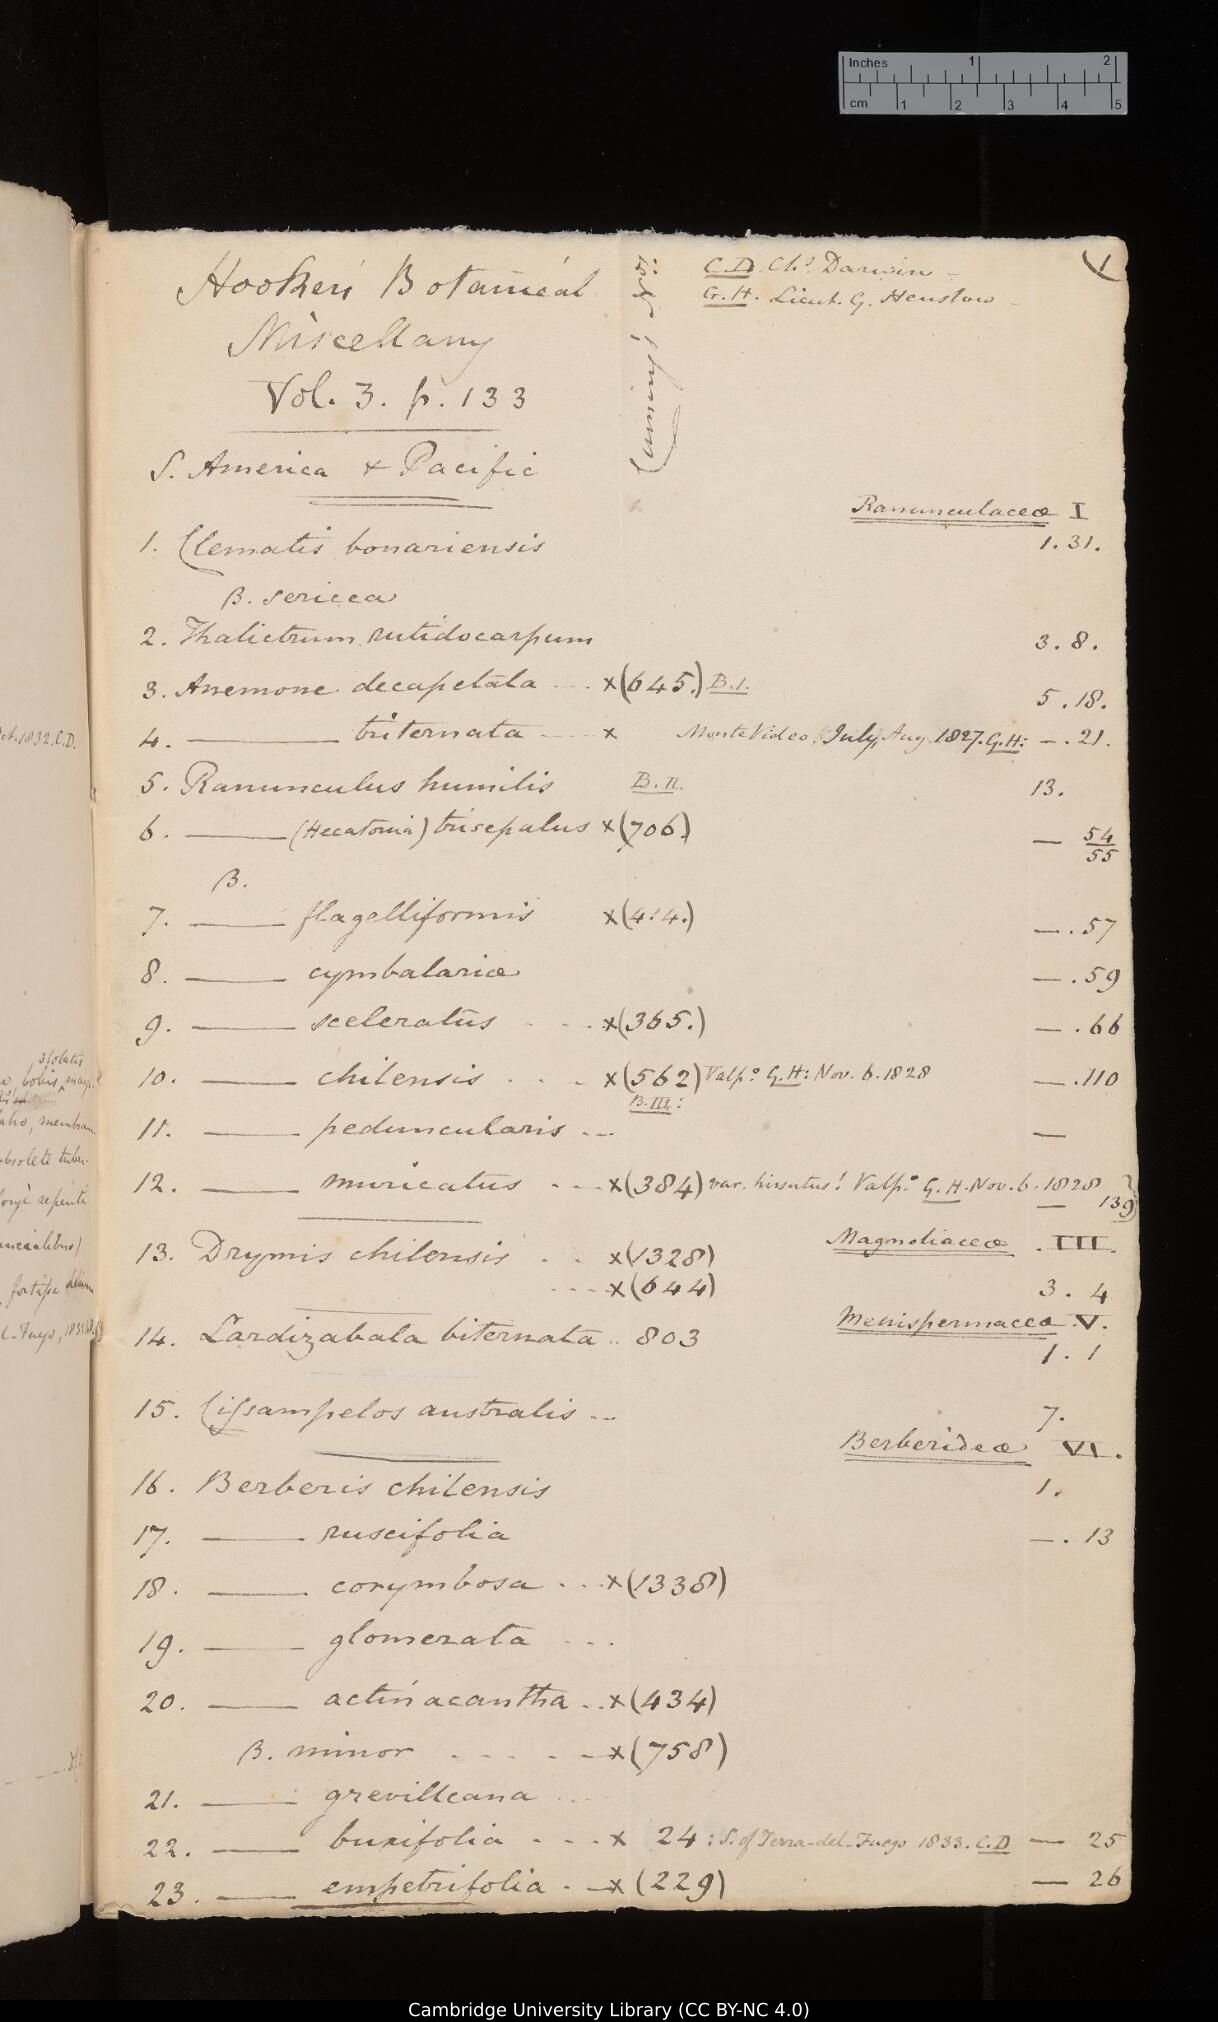 Inches 1 2
cm 1 2 3 4 5
1
Hooker's Botanical
Miscellany
Vol. 3. p. 133
Cuming's Nos:
C.D. Chs. Darwin -
G.H. Lieut. G. Henslow -
S. America & Pacific
Ranunculaceæ I
1. Clematis bonariensis 1. 31.
B. sericea
2. Thalictrum rutidocarpum 3. 8.
3. Anemone decapetala ... x(645.) B.I. 5. 18.
4. —— triternata ... x Monte Video, July, Aug. 1827. G.H: —. 21.
5. Ranunculus humilis B.II. 13.
6. —— (Hecatonia) trisepalus x(706) — 54/55
B.
7. —— flagelliformis x(414.) —. 57
8. —— cymbalariæ —. 59
9. —— sceleratus ... x(365.) —. 66
10. —— chilensis ... x(562) Valpo. G.H: Nov. 6. 1828 —. 110
B.III:
11. —— peduncularis ... —
12. —— muricatus ... x(384) var. hirsutus! Valpo. G.H. Nov. 6. 1828
— 139
Magnoliaceæ . III.
13. Drymis chilensis .. x(1328)
... x(644) 3. 4
Menispermaceæ V.
14. Lardizabala biternata .. 803 1. 1
15. Cissampelos australis ... 7.
Berberideæ VI.
16. Berberis chilensis 1.
17. —— ruscifolia —. 13
18. —— corymbosa ... x(1338)
19. —— glomerata ...
20. —— actinacantha .. x(434)
B. minor .... —x(758)
21. —— grevilleana ...
22. —— buxifolia ... x 24: S. of Terra-del-Fuego 1833. C.D — 25
23. —— empetrifolia . —x(229) — 26
Oct. 1832. C.D.
3folatis
obsolete tuber-
Cambridge University Library (CC BY-NC 4.0)